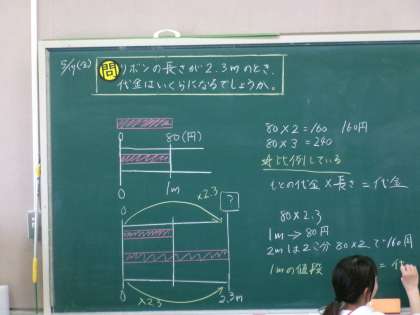 5/17(金)
問 リボンの長さが2.3mのとき、
代金はいくらになるでしょうか。
0 80(円)
0 1m
0 ×2.3 ?
0 ×2.3 2.3m
80×2=160 160円
80×3=240
比例している
もとの代金×長さ=代金
80×2.3
1m→80円
2mは2こ分 80×2で160円
1mの値段 =